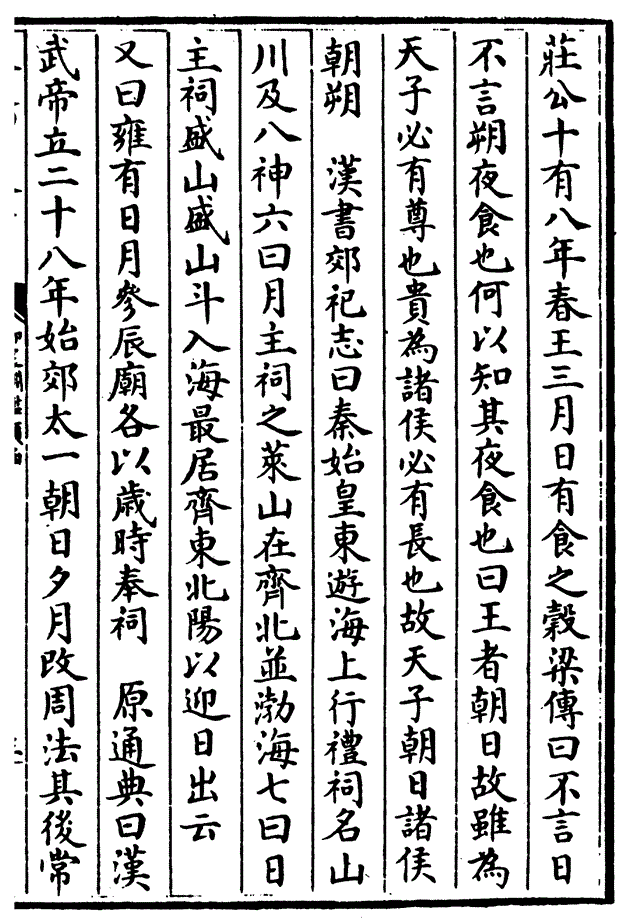 莊公十有八年春王三月日有食之穀梁傳曰不言日
不言朔夜食也何以知其夜食也曰王者朝日故雖為
天子必有尊也貴為諸侯必有長也故天子朝日諸侯
朝朔　漢書郊祀志曰秦始皇東遊海上行禮祠名山
川及八神六曰月主祠之萊山在齊北並渤海七曰日
主祠盛山盛山斗入海最居齊東北陽以迎日出云
又曰雍有日月參辰廟各以歲時奉祠　原通典曰漢
武帝立二十八年始郊太一朝日夕月改周法其後常